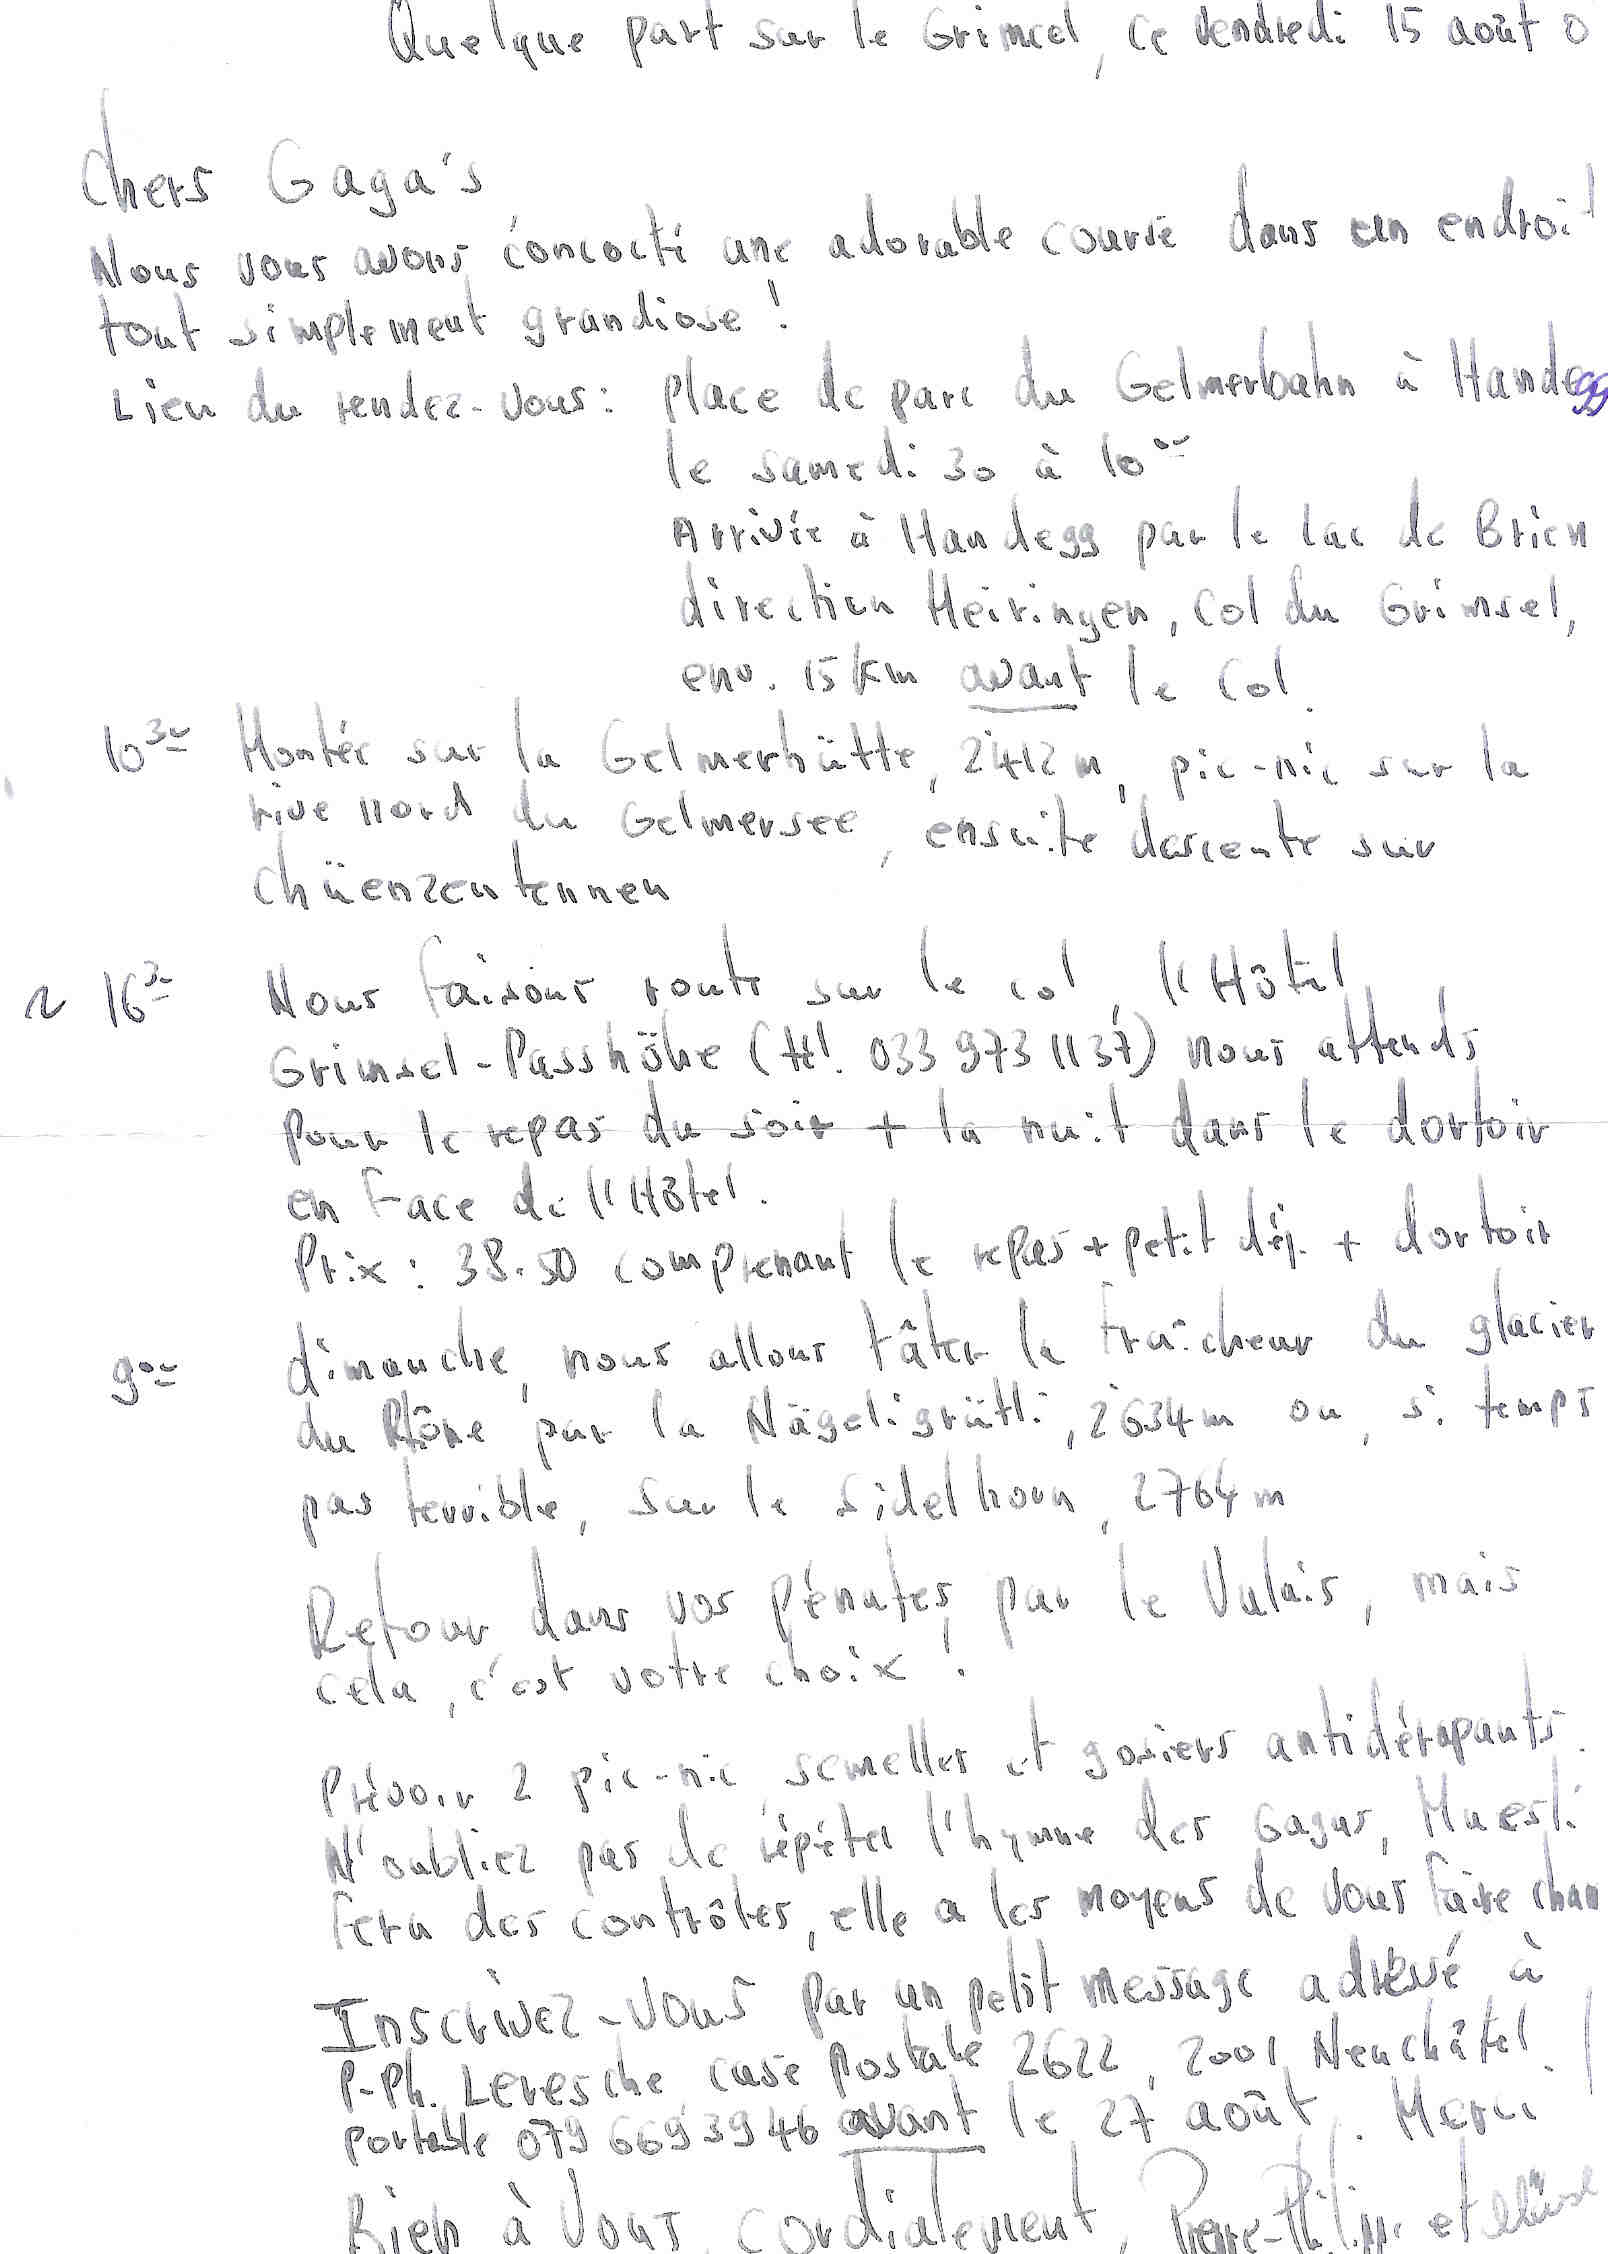 Quelque part sur le Grimsel, ce vendredi 15 août 0
Chers Gaga's
Nous vous avons concocté une adorable course dans un endroit
tout simplement grandiose !
Lieu du rendez-vous : place de parc du Gelmerbahn à Handegg
le samedi 30 à 10⁰⁰
Arrivée à Handegg par le lac de Brien
direction Meiringen, col du Grimsel,
env. 15 km avant le col.
10³⁰ Montée sur la Gelmerhütte, 2'412 m, pic-nic sur la
rive nord du Gelmersee, ensuite descente sur
Chüenzentennen
~ 16³⁰ Nous faisons route sur le col, l'Hôtel
Grimsel-Passhöhe (tél. 033 973 11 37) nous attends
pour le repas du soir + la nuit dans le dortoir
en face de l'Hôtel.
Prix : 38.50 comprenant le repas + petit déj. + dortoir
9⁰⁰ dimanche, nous allons tâter la fraîcheur du glacier
du Rhône par la Nägeligrätli, 2'634 m ou, si temps
pas terrible, sur le Sidelhorn, 2764 m
Retour dans vos pénates par le Valais, mais
cela, c'est votre choix !
Prévoir 2 pic-nic, semelles et gosiers antidérapants.
N'oubliez pas de répéter l'hymne des Gagas, Muesli
fera des contrôles, elle a les moyens de vous faire chan
Inscrivez-vous par un petit message adressé à
P-Ph. Leresche case postale 2622, 2001 Neuchâtel
portable 079 669 39 46 avant le 27 août. Merci !
Bien à vous, cordialement, Pierre-Philippe et